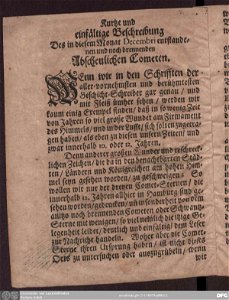 Kurtze und
einfältige Beschreibung
Deß in diesem Monat Decembri entstande-
nen und noch brennenden
Abscheulichen Cometen.
Wenn wir in den Schrifften der
aller-vornehmsten und berühmtesten
Geschicht-Schreiber gar genau / und
mit Fleiß umher sehen / werden wir
kaum einig Exempel finden / daß in so wenig Zeit
den Jahren so viel grosse Wunder am Firmament
des Himmels / und in der Lufft / sich
gen haben / als eben zu diesen unsern Zeiten / und
zwar innerhalb 10. oder 12. Jahren.
Denn anderer grossen Wunder und erschreck-
lichen Zeichen / die da in den benachbarten Städ-
ten / Ländern und Königreichen am hohen Him-
mel seyn gesehen worden / zu geschweigen: So
wollen wir nur der dreyen Comet-Sternen / die
innerhalb 12. Jahren allhier in Hamburg sind ge-
sehen worden / gedencken / und insonderheit von dem
itzo noch brennenden Cometen oder Schwantz-
Sterne mit wenigen / so viel nehmlich die Zeit und
Gelegenheit leidet / deutlich und einfältig dem Leser
zur Nachricht handeln. Woher aber die Come-
ten ihren Ursprung haben / ist nicht dieses
Orts zu untersuchen oder auszugrübeln / wenn
wir